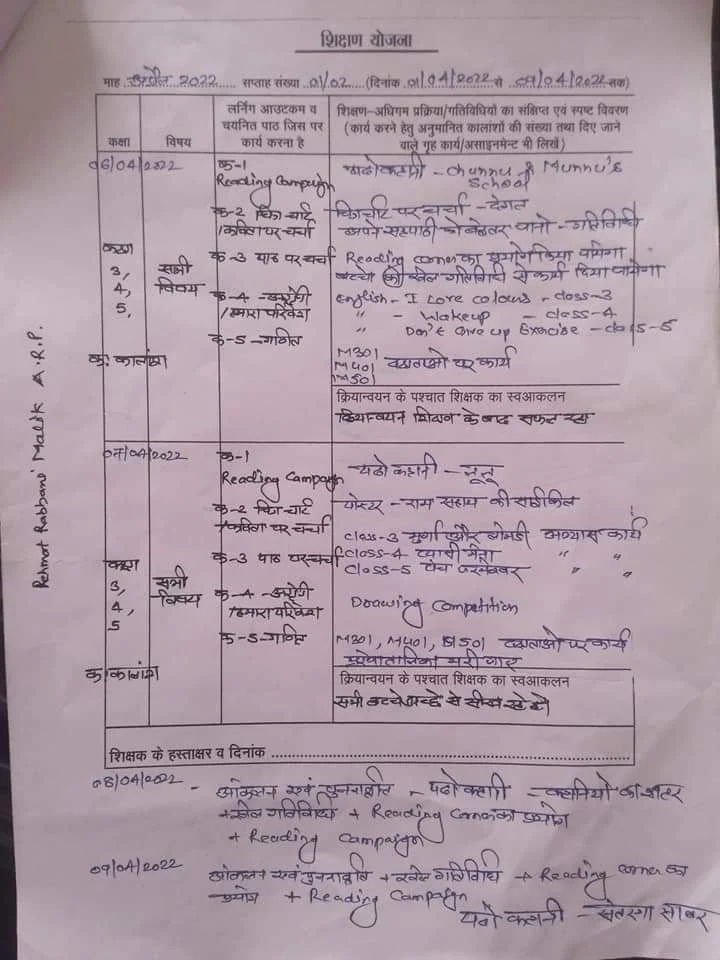 शिक्षण योजना
माह अप्रैल 2022 ..... सप्ताह संख्या 01/02 ... (दिनांक 01/04/2022 से 09/04/2022 तक)
कक्षा
विषय
लर्निंग आउटकम व
चयनित पाठ जिस पर
कार्य करना है
शिक्षण–अधिगम प्रक्रिया/गतिविधियों का संक्षिप्त एवं स्पष्ट विवरण
(कार्य करने हेतु अनुमानित कालांशों की संख्या तथा दिए जाने
वाले गृह कार्य/असाइनमेन्ट भी लिखें)
06/04/2022
क-1
Reading Campaign
पढो कहानी - Chunnu & Munnu's
School
क-2 चित्र चार्ट
/कविता पर चर्चा
चित्रचार्ट पर चर्चा -
अपने सहपाठी को बेहतर जानो - गतिविधी
कक्षा
3,
4,
5,
सभी
विषय
क-3 पाठ पर चर्चा
Reading corner का प्रयोग किया जायेगा
बच्चो को खेल गतिविदी से कार्य किया जायेगा
क-4 - अंग्रेजी
/हमारा परिवेश
English - I Love Colours - class-3
" - Wakeup - class-4
" Don't Give up Exercise - class-5
क-5-गणित
क: कालांश
M301
M401
M501
दक्षताओ पर कार्य
क्रियान्वयन के पश्चात शिक्षक का स्वआकलन
क्रियान्वयन शिक्षण के बाद सफल रहा
07/04/2022
क-1
Reading Campaign
पढो कहानी -
क-2 चित्र चार्ट
/कविता पर चर्चा
पोस्टर - राम सहाय की साईकिल
क-3 पाठ पर चर्चा
class-3 मुर्गा और लोमडी अभ्यास कार्य
class-4 " "
class-5 पंच परमेश्वर " "
कक्षा
3,
4,
5
सभी
विषय
क-4-अंग्रेजी
/हमारा परिवेश
Drawing Competition
क-5-गणित
M301, M401, M501 दक्षताओ पर कार्य
क कालांश
क्रियान्वयन के पश्चात शिक्षक का स्वआकलन
सभी बच्चे अच्छे से सीख रहे है
शिक्षक के हस्ताक्षर व दिनांक ..........
08/04/2022 - आंकलन एवं पुनरावृत्ति - पढो कहानी - कहानियो का
+ खेल गतिविधि + Reading Corner का प्रयोग
+ Reading Campaign
09/04/2022 आंकलन एवं पुनरावृत्ति + खेल गतिविधि + Reading corner का
प्रयोग + Reading Campaign
पढो कहानी -
Rehmat Rabbani Malik A.R.P.